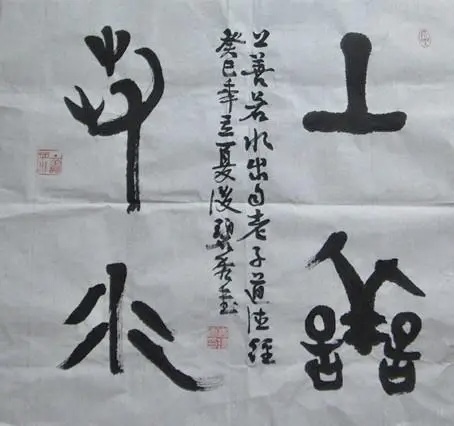 上善
若水
上善若水出自老子道德經
癸巳年立夏後碧秀書